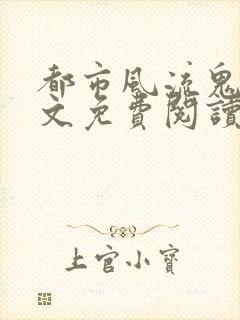 都市風流鬼
文免費閱讀
上官小寶